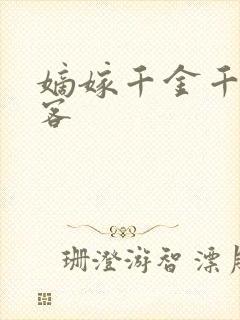 嫡嫁千金千
客
珊澄游智 漂